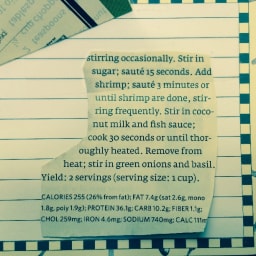 stirring occasionally. Stir in
sugar; sauté 15 seconds. Add
shrimp; sauté 3 minutes or
until shrimp are done, stir-
ring frequently. Stir in coco-
nut milk and fish sauce;
cook 30 seconds or until thor-
oughly heated. Remove from
heat; stir in green onions and basil.
Yield: 2 servings (serving size: 1 cup).
CALORIES 255 (26% from fat); FAT 7.4g (sat 2.6g, mono
1.8g, poly 1.9g); PROTEIN 36.1g; CARB 10.2g; FIBER 1.1g;
CHOL 259mg; IRON 4.6mg; SODIUM 740mg; CALC 111m